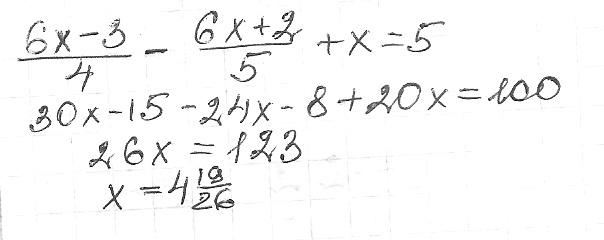 (6x-3)/4 - (6x+2)/5 + x = 5
30x-15-24x-8+20x=100
26x = 123
x = 4 19/26